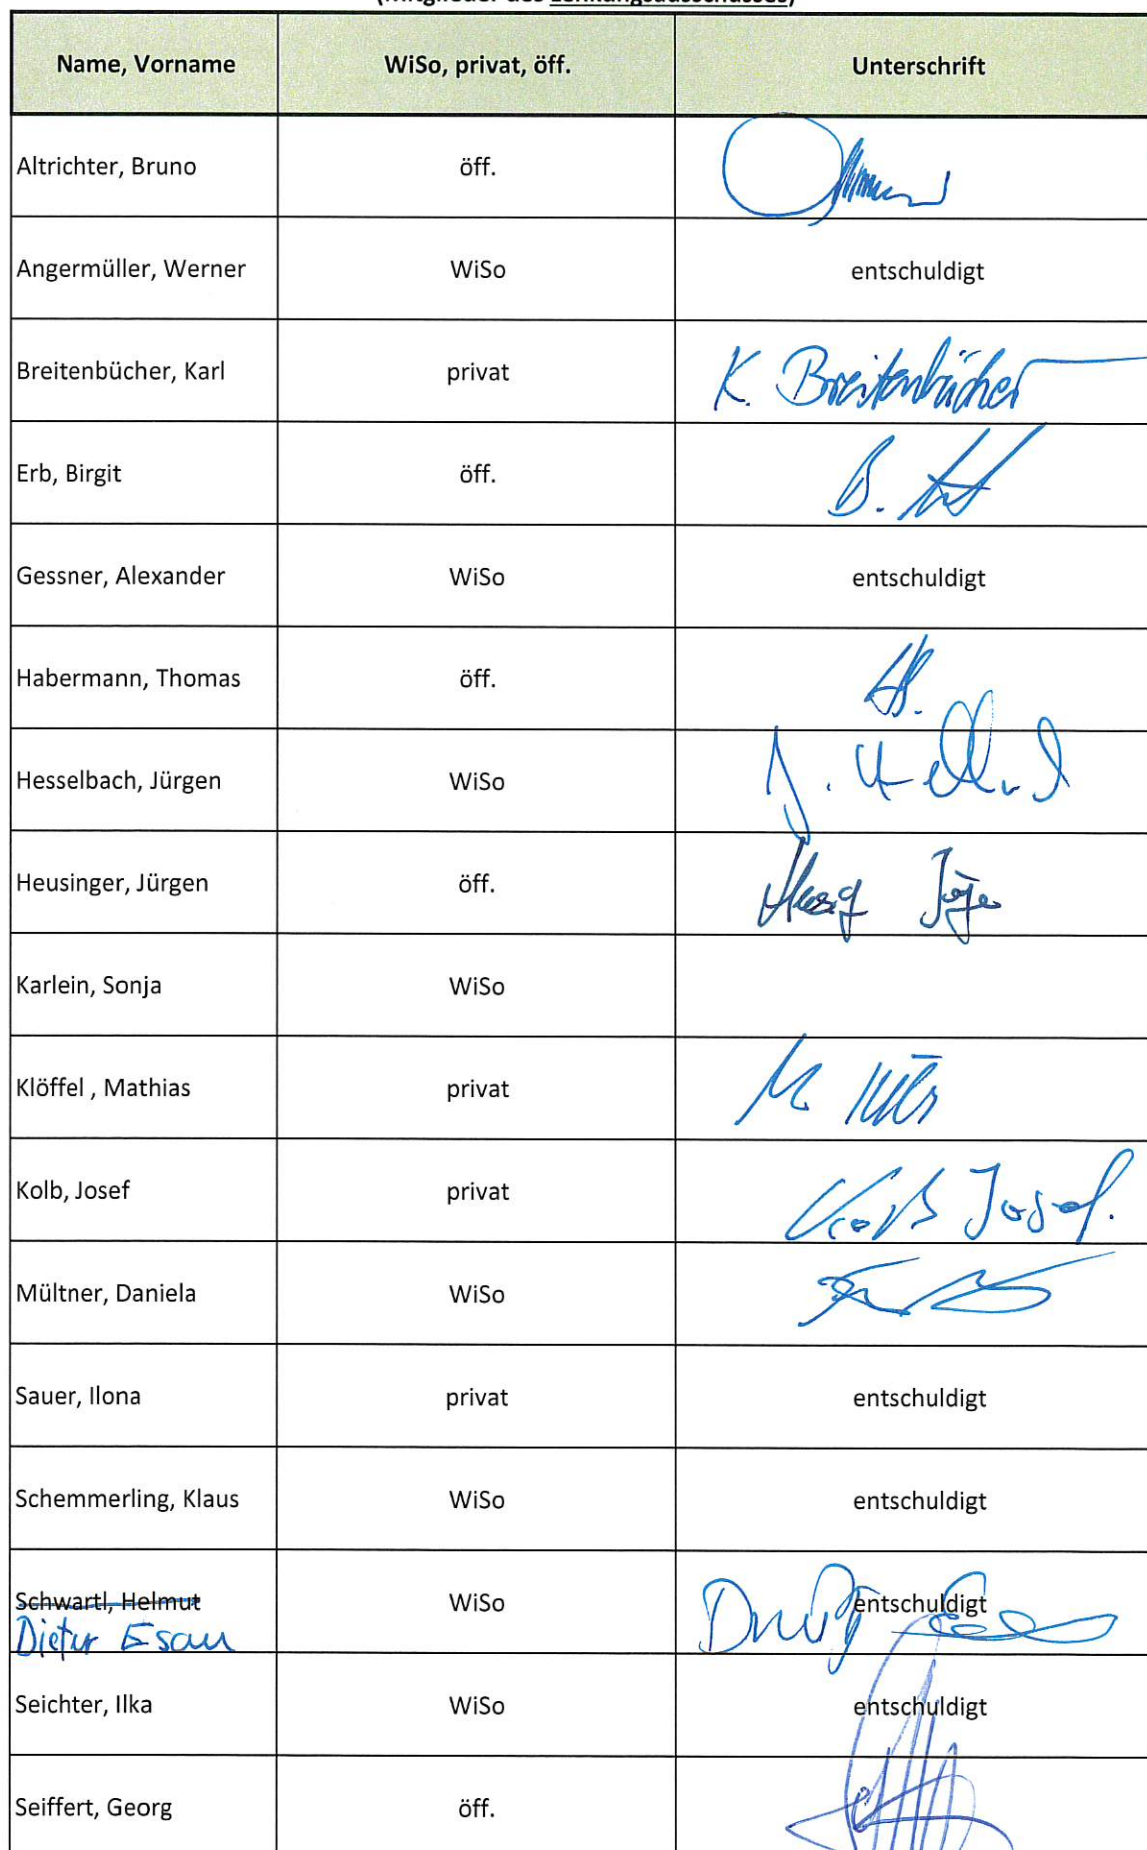 (Mitglieder des Lenkungsausschusses)
Name, Vorname WiSo, privat, öff. Unterschrift
Altrichter, Bruno öff.
Angermüller, Werner WiSo entschuldigt
Breitenbücher, Karl privat K. Breitenbücher
Erb, Birgit öff. B. Erb
Gessner, Alexander WiSo entschuldigt
Habermann, Thomas öff.
Hesselbach, Jürgen WiSo
Heusinger, Jürgen öff.
Karlein, Sonja WiSo
Klöffel , Mathias privat
Kolb, Josef privat Kolb Josef.
Mültner, Daniela WiSo
Sauer, Ilona privat entschuldigt
Schemmerling, Klaus WiSo entschuldigt
Schwartl, Helmut WiSo entschuldigt
Dieter Esau
Seichter, Ilka WiSo entschuldigt
Seiffert, Georg öff.